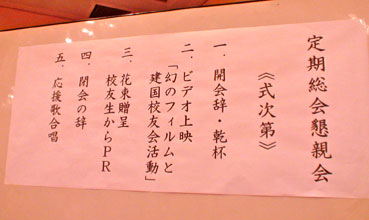 定期総会懇親会
《式次第》
一、開会辞・乾杯
二、ビデオ上映
「幻のフィルムと
建国校友会活動」
三、花束贈呈
校友生からPR
四、閉会の辞
五、応援歌合唱